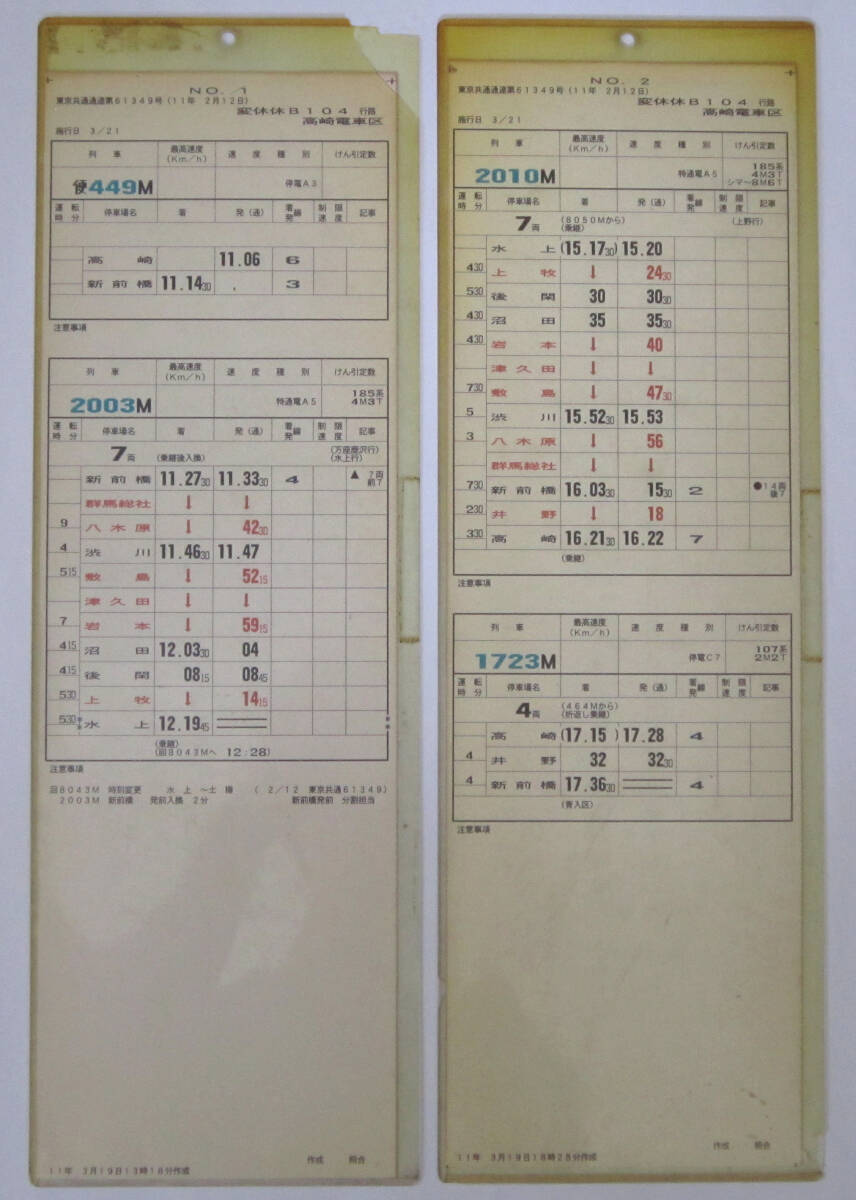 NO. 1
東京共通通達第61349号(11年 2月12日)
変休休B104 行路
高崎電車区
施行日 3/21
列車 最高速度(Km/h) 速度種別 けん引定数
便449M 停電A3
運転時分 停車場名 着 発(通) 着発線 制限速度 記事
高崎 11.06 6
新前橋 11.14 30 3
注意事項
列車 最高速度(Km/h) 速度種別 けん引定数
2003M 特通電A5 185系 4M3T
運転時分 停車場名 着 発(通) 着発線 制限速度 記事
7両 (乗継後入換) (万座鹿沢行)(水上行)
新前橋 11.27 30 11.33 30 4 ▲ 7両 前7
群馬総社 ↓ ↓
9 八木原 ↓ 42 30
4 渋川 11.46 30 11.47
5 15 敷島 ↓ 52 15
津久田 ↓ ↓
7 岩本 ↓ 59 15
4 15 沼田 12.03 30 04
4 15 後閑 08 15 08 45
5 30 上牧 ↓ 14 15
5 30 水上 12.19 45
(乗継)
(回8043Mへ 12:28)
注意事項
回8043M 時刻変更 水上 ~土樽 ( 2/12 東京共通61349)
2003M 新前橋 発前入換 2分 新前橋発前 分割担当
作成 照合
11年 3月19日13時18分作成
NO. 2
東京共通通達第61349号(11年 2月12日)
変休休B104 行路
高崎電車区
施行日 3/21
列車 最高速度(Km/h) 速度種別 けん引定数
2010M 特通電A5 185系 4M3T シマ~8M6T
運転時分 停車場名 着 発(通) 着発線 制限速度 記事
7両 (8050Mから)(乗継) (上野行)
水上 (15.17 30) 15.20
4 30 上牧 ↓ 24 30
5 30 後閑 30 30 30
4 30 沼田 35 35 30
4 30 岩本 ↓ 40
津久田 ↓ ↓
7 30 敷島 ↓ 47 30
5 渋川 15.52 30 15.53
3 八木原 ↓ 56
群馬総社 ↓ ↓
7 30 新前橋 16.03 30 15 30 2 ●14両 後7
2 30 井野 ↓ 18
3 30 高崎 16.21 30 16.22 7
(乗継)
注意事項
列車 最高速度(Km/h) 速度種別 けん引定数
1723M 停電C7 107系 2M2T
運転時分 停車場名 着 発(通) 着発線 制限速度 記事
4両 (464Mから)(折返し乗継)
高崎 (17.15 ) 17.28 4
4 井野 32 32 30
4 新前橋 17.36 30 4
(青入区)
注意事項
作成 照合
11年 3月19日18時28分作成